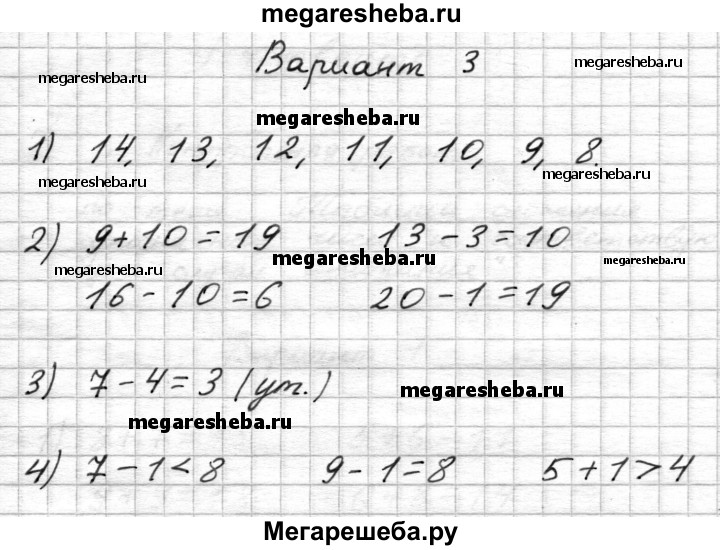 megaresheba.ru
Вариант 3
megaresheba.ru megaresheba.ru
megaresheba.ru
1) 14, 13, 12, 11, 10, 9, 8.
megaresheba.ru megaresheba.ru
2) 9 + 10 = 19 13 - 3 = 10
megaresheba.ru megaresheba.ru megaresheba.ru
16 - 10 = 6 20 - 1 = 19
3) 7 - 4 = 3 (ут.)
megaresheba.ru
megaresheba.ru
4) 7 - 1 < 8 9 - 1 = 8 5 + 1 > 4
Мегарешеба.ру